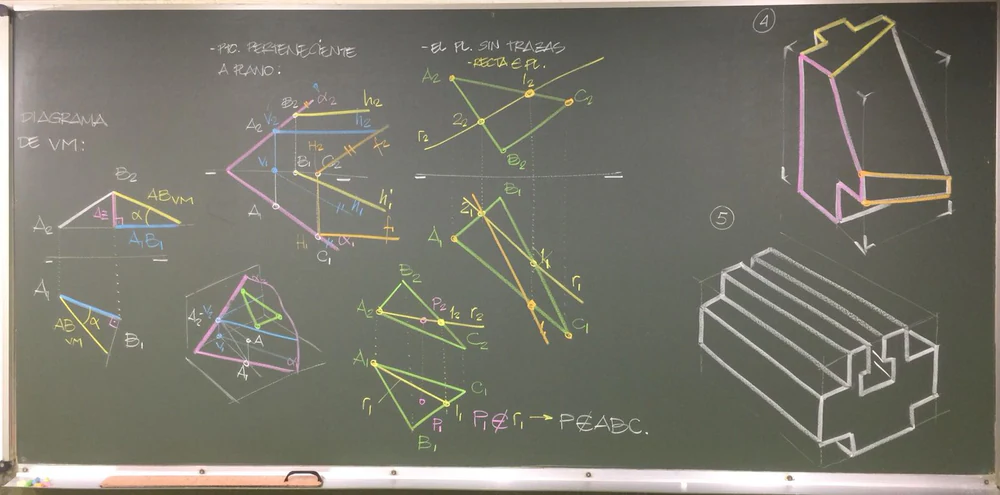 DIAGRAMA
DE VM:
B₂
A₂
ΔZ
α
AB VM
A₁B₁
A₁
AB
VM
α
B₁
- PTO. PERTENECIENTE
A PLANO:
B₂
α₂
h₂
A₂
V₂
h₂
H₂
f₂
V₁
B₁
C₂
A₁
h₁
h₁
H₁
α₁
C₁
A₂
V₂
A
A₁
- EL PL. SIN TRAZAS
- RECTA E PL.
A₂
1₂
C₂
2₂
r₂
B₂
B₁
2₁
A₁
1₁
r₁
C₁
B₂
A₂
P₂
1₂
r₂
C₂
A₁
C₁
r₁
1₁
P₁
B₁
P₁ ∉ r₁ → P ∉ ABC.
4
5